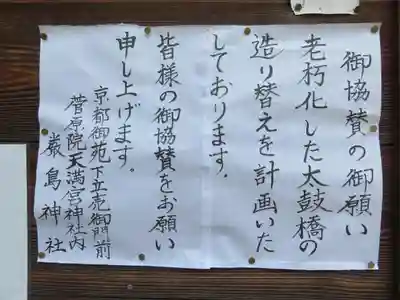 御協賛の御願い
老朽化した太鼓橋の
造り替えを計画いた
しております．
皆様の御協賛をお願い
申し上げます。
京都御苑下立売御門前
菅原院天満宮神社内
厳島神社